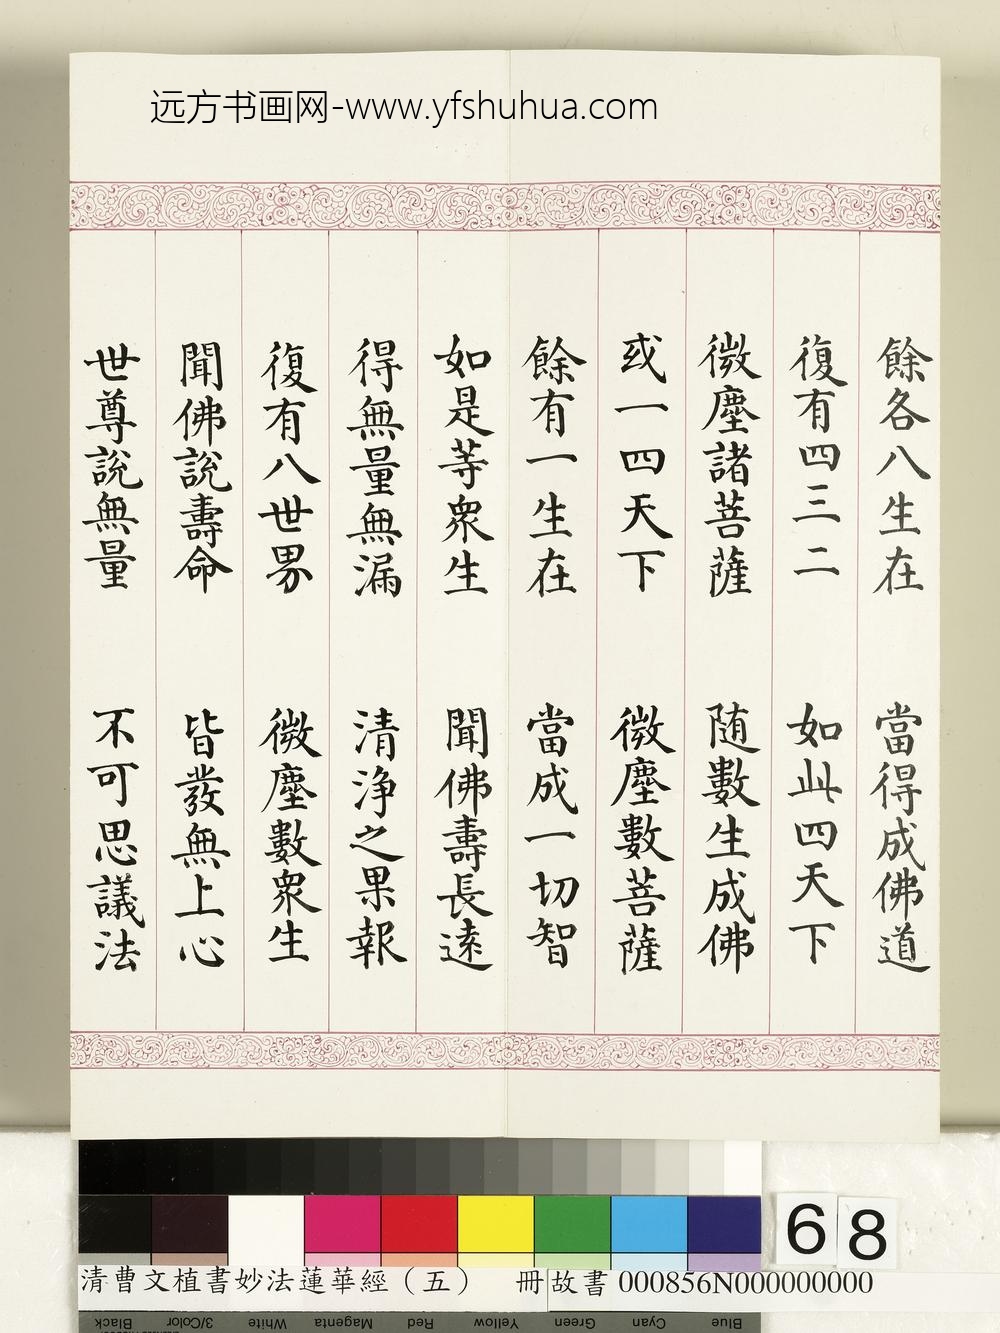 远方书画网-www.yfshuhua.com
餘各八生在 當得成佛道
復有四三二 如此四天下
微塵諸菩薩 随數生成佛
或一四天下 微塵數菩薩
餘有一生在 當成一切智
如是等衆生 聞佛壽長遠
得無量無漏 清淨之果報
復有八世界 微塵數衆生
聞佛說壽命 皆發無上心
世尊說無量 不可思議法
68
清曹文植書妙法蓮華經（五） 冊 故書 000856N000000000
Black 3/Color White Magenta Red Yellow Green Cyan Blue